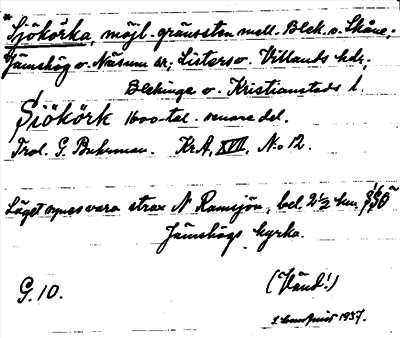 * Sjökörka, möjl. gränssten mell. Blek. o. Skåne;
Jämshög o. Näsum sr; Listers o. Villands hdr;
Blekinge o. Kristianstads l.
Sjökörk 1600-tal. senare del.
Trol. G. Buhrman. KrA, XVII, No 12.
Läget synes vara strax N Ramsjön, bel. 2 ½ km
Jämshögs kyrka.
G. 10.
(Vänd!)
1937.